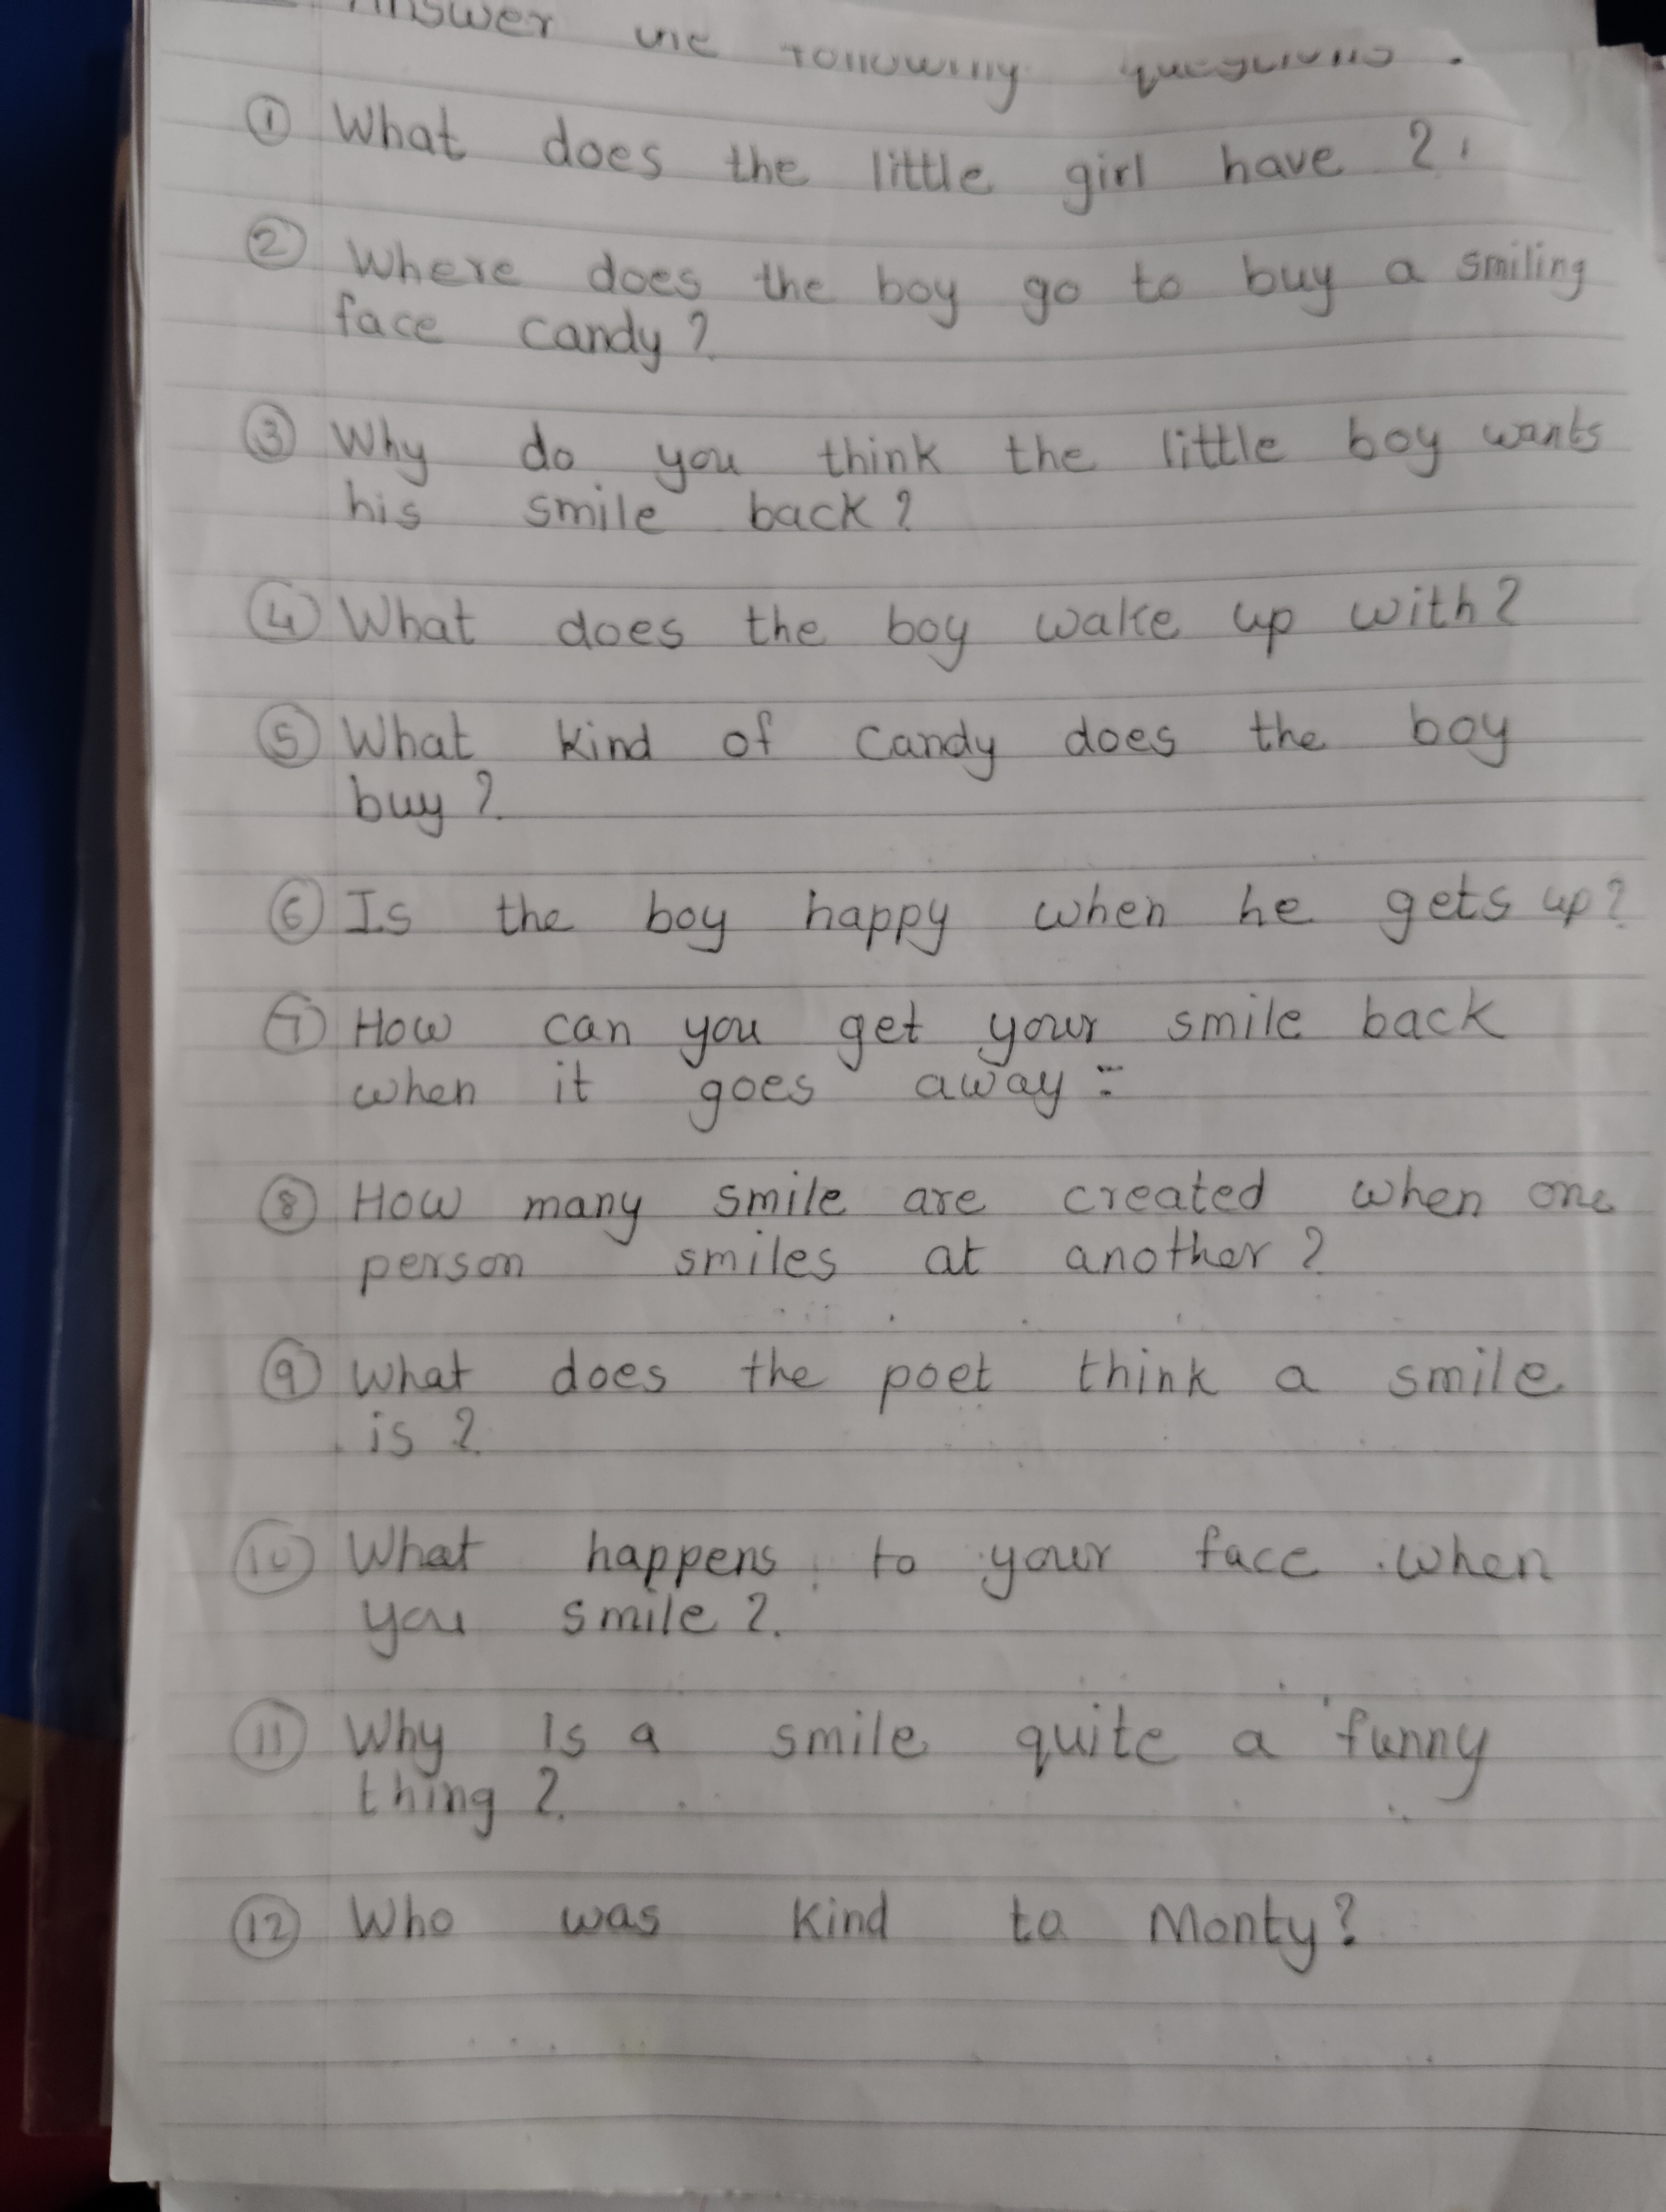 Answer the following questions.
① What does the little girl have ?
② Where does the boy go to buy a smiling
face candy ?
③ Why do you think the little boy wants
his smile back ?
④ What does the boy wake up with ?
⑤ What kind of candy does the boy
buy ?
⑥ Is the boy happy when he gets up ?
⑦ How can you get your smile back
when it goes away :
⑧ How many smile are created when one
person smiles at another ?
⑨ What does the poet think a smile
is ?
⑩ What happens to your face when
you smile ?.
⑪ Why Is a smile quite a funny
thing ?
⑫ Who was kind to Monty ?